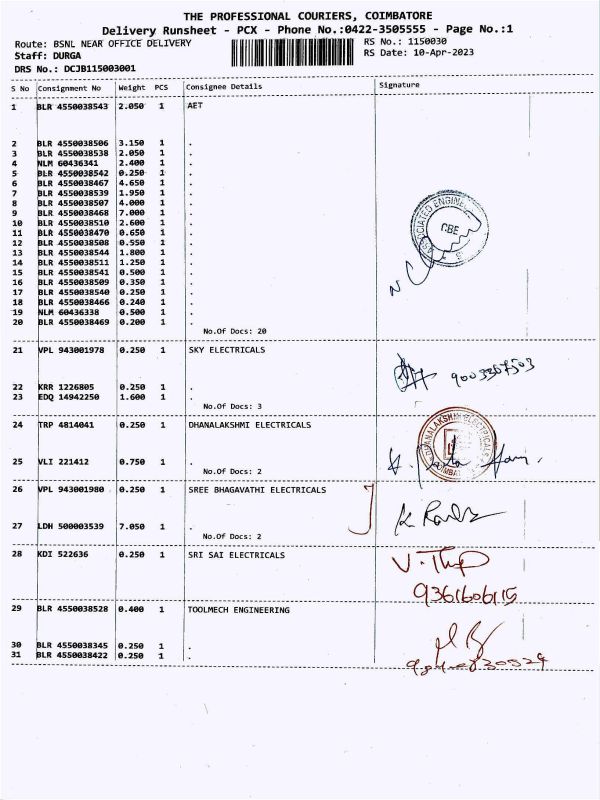 THE PROFESSIONAL COURIERS, COIMBATORE
Delivery Runsheet - PCX - Phone No.:0422-3505555 - Page No.:1
Route: BSNL NEAR OFFICE DELIVERY RS No.: 1150030
Staff: DURGA RS Date: 10-Apr-2023
DRS No.: DCJB115003001
S No Consignment No Weight PCS Consignee Details Signature
1 BLR 4550038543 2.050 1 AET
2 BLR 4550038506 3.150 1 .
3 BLR 4550038538 2.050 1 .
4 NLM 60436341 2.400 1 .
5 BLR 4550038542 0.250 1 .
6 BLR 4550038467 4.650 1 .
7 BLR 4550038539 1.950 1 .
8 BLR 4550038507 4.000 1 .
9 BLR 4550038468 7.000 1 .
10 BLR 4550038510 2.600 1 .
11 BLR 4550038470 0.650 1 .
12 BLR 4550038508 0.550 1 .
13 BLR 4550038544 1.800 1 .
14 BLR 4550038511 1.250 1 .
15 BLR 4550038541 0.500 1 .
16 BLR 4550038509 0.350 1 .
17 BLR 4550038540 0.250 1 .
18 BLR 4550038466 0.240 1 .
19 NLM 60436338 0.500 1 .
20 BLR 4550038469 0.200 1 .
No.Of Docs: 20
ASSOCIATED ENGINEE
CBE
21 VPL 943001978 0.250 1 SKY ELECTRICALS
22 KRR 1226805 0.250 1 .
23 EDQ 14942250 1.600 1 .
No.Of Docs: 3
24 TRP 4814041 0.250 1 DHANALAKSHMI ELECTRICALS
DHANALAKSHMI ELECTRICALS
25 VLI 221412 0.750 1 .
No.Of Docs: 2
26 VPL 943001980 0.250 1 SREE BHAGAVATHI ELECTRICALS
27 LDH 500003539 7.050 1 .
No.Of Docs: 2
28 KDI 522636 0.250 1 SRI SAI ELECTRICALS
9361606115
29 BLR 4550038528 0.400 1 TOOLMECH ENGINEERING
30 BLR 4550038345 0.250 1 .
31 BLR 4550038422 0.250 1 .